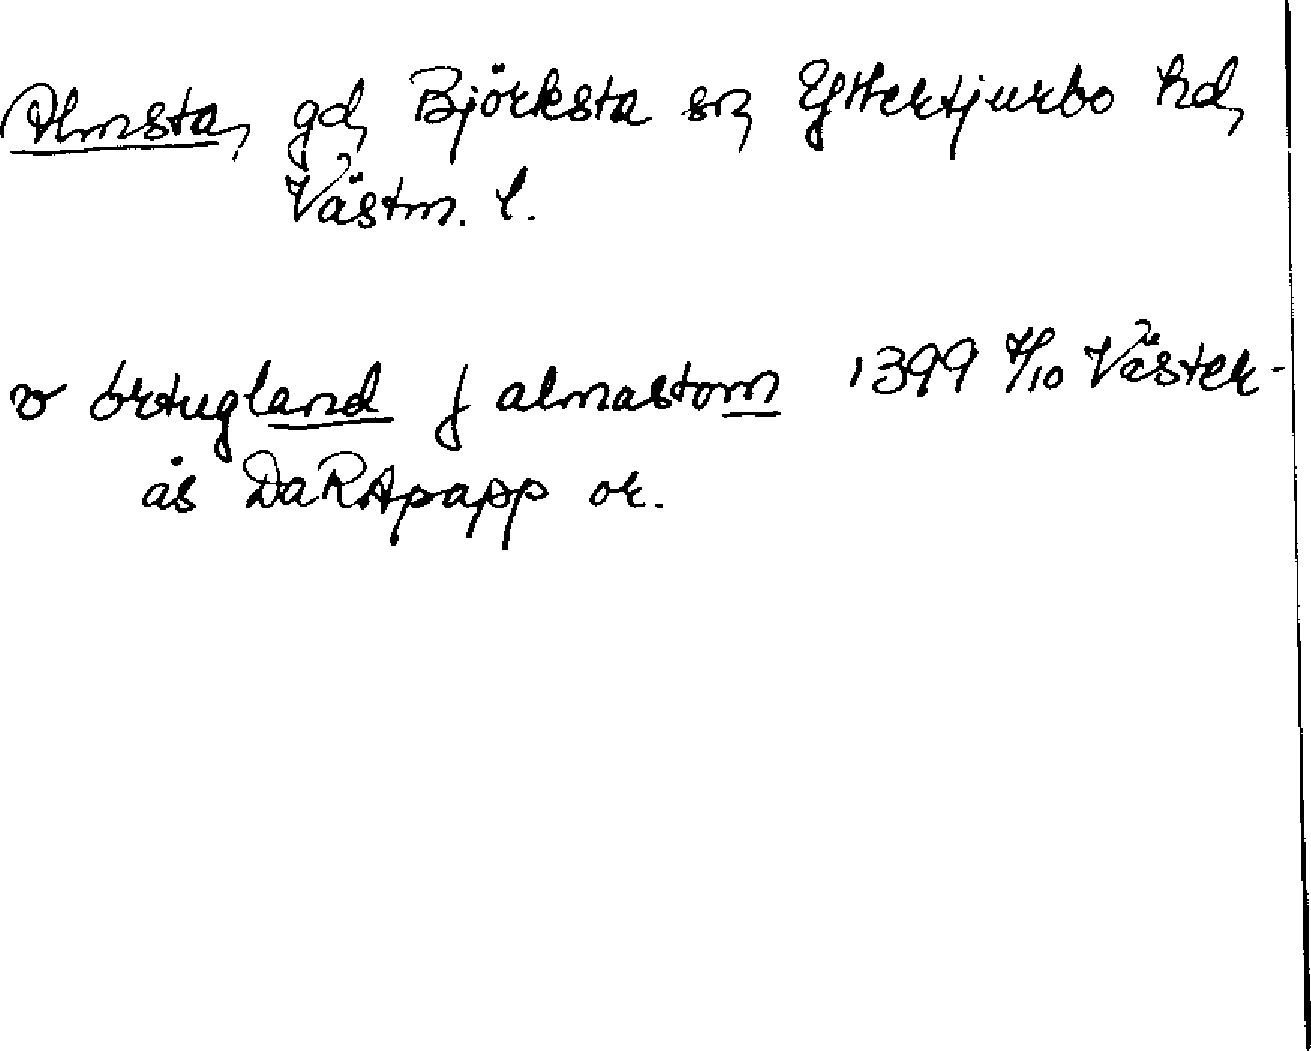 Almsta, gd, Björksta sn, Yttertjurbo hd,
Västm. l.
v örtugland j almastom 1399 4/10 Väster-
ås DaRApapp or.